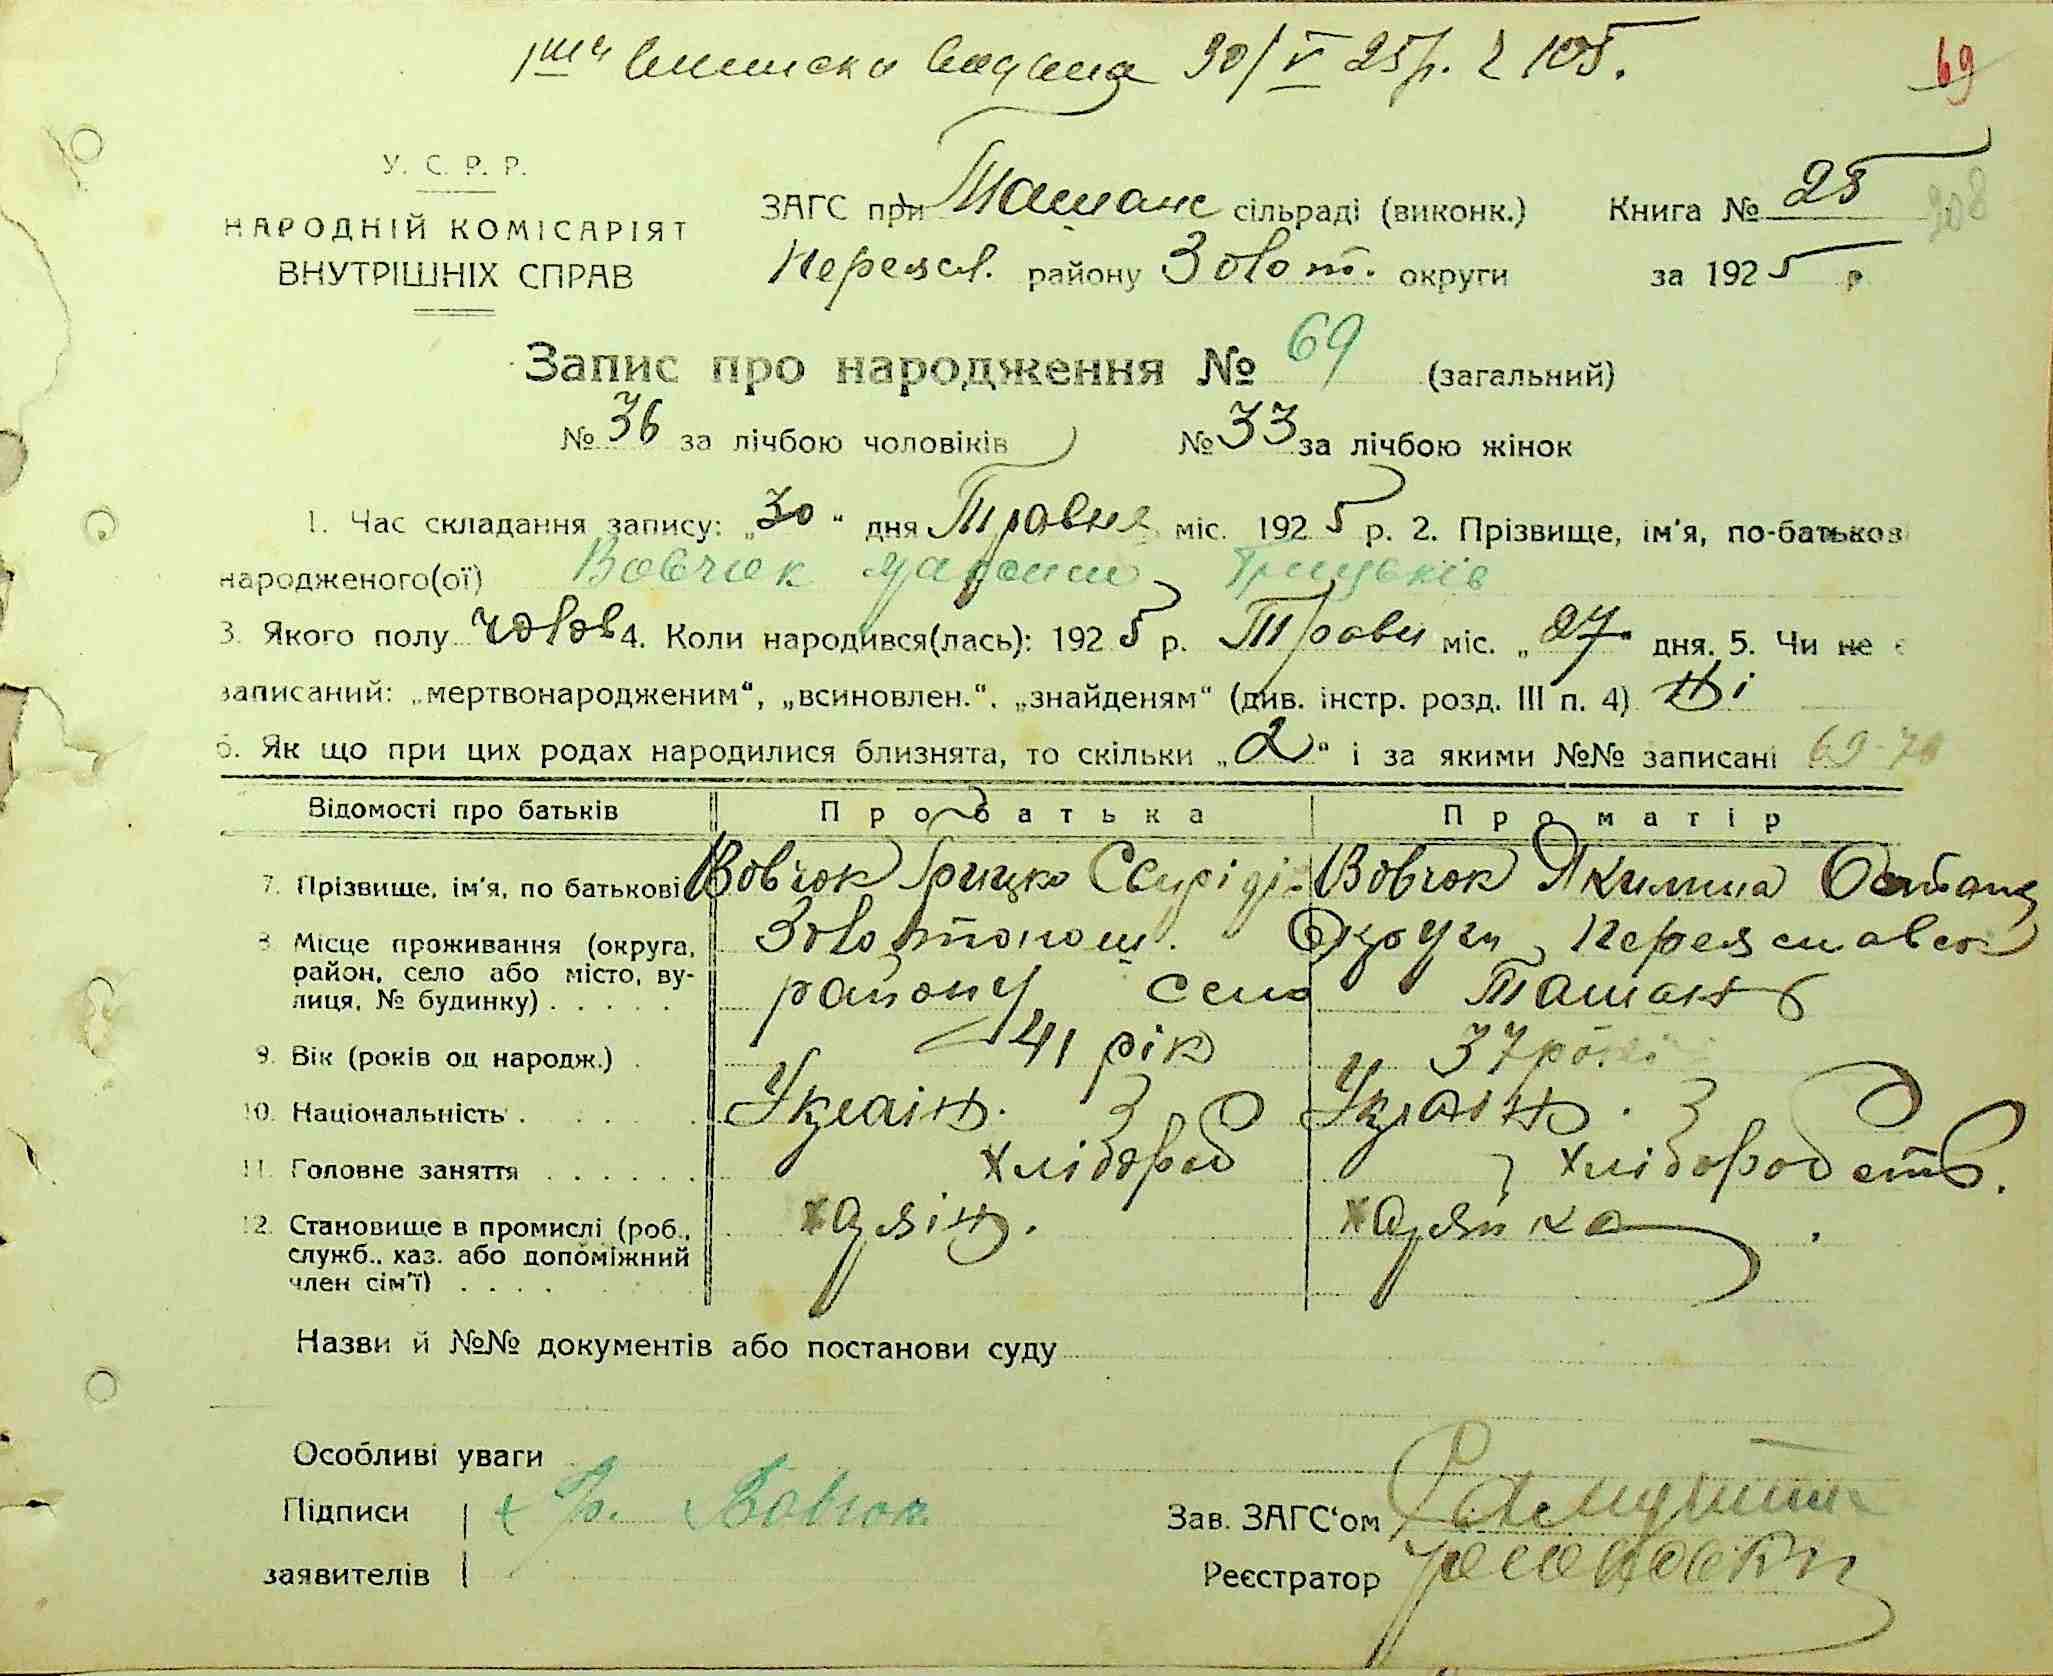 виписка видана 30/V 25р. 105.
69
У. С. Р. Р.
НАРОДНІЙ КОМІСАРІЯТ
ВНУТРІШНІХ СПРАВ
ЗАГС при Ташанс сільраді (виконк.)
Переясл. району Золот. округи
Книга № 25
208
за 1925 р.
Запис про народження № 69 (загальний)
№ 36 за лічбою чоловіків № 33 за лічбою жінок
1. Час складання запису: „30“ дня Травня міс. 1925 р. 2. Прізвище, ім'я, по-батькові
народженого(ої) Вовчок Грицьків
3. Якого полу чолов 4. Коли народився(лась): 1925 р. Травн міс. „27“ дня. 5. Чи не є
записаний: „мертвонародженим“, „всиновлен.“, „знайденям“ (див. інстр. розд. III п. 4) Ні
6. Як що при цих родах народилися близнята, то скільки „2“ і за якими №№ записані 69-70
Відомості про батьків Про батька Про матір
7. Прізвище, ім'я, по батькові Вовчок Грицко Свиріді Вовчок Якилина Остапц
8. Місце проживання (округа, Золотонош. Округи Переяславск
район, село або місто, ву- району село Ташань
лиця, № будинку) . . . . .
9. Вік (років од народж.) . 41 рік 37 років
10. Національність . . . . . Україн. Україн.
11. Головне заняття . . . . . . хлібороб хлібороб ств.
12. Становище в промислі (роб., хазяін. хазяйка
служб., хаз. або допоміжний
член сім'ї) . . . .
Назви й №№ документів або постанови суду
Особливі уваги
Підписи + Гр. Вовчок
заявителів
Зав. ЗАГС'ом
Реєстратор